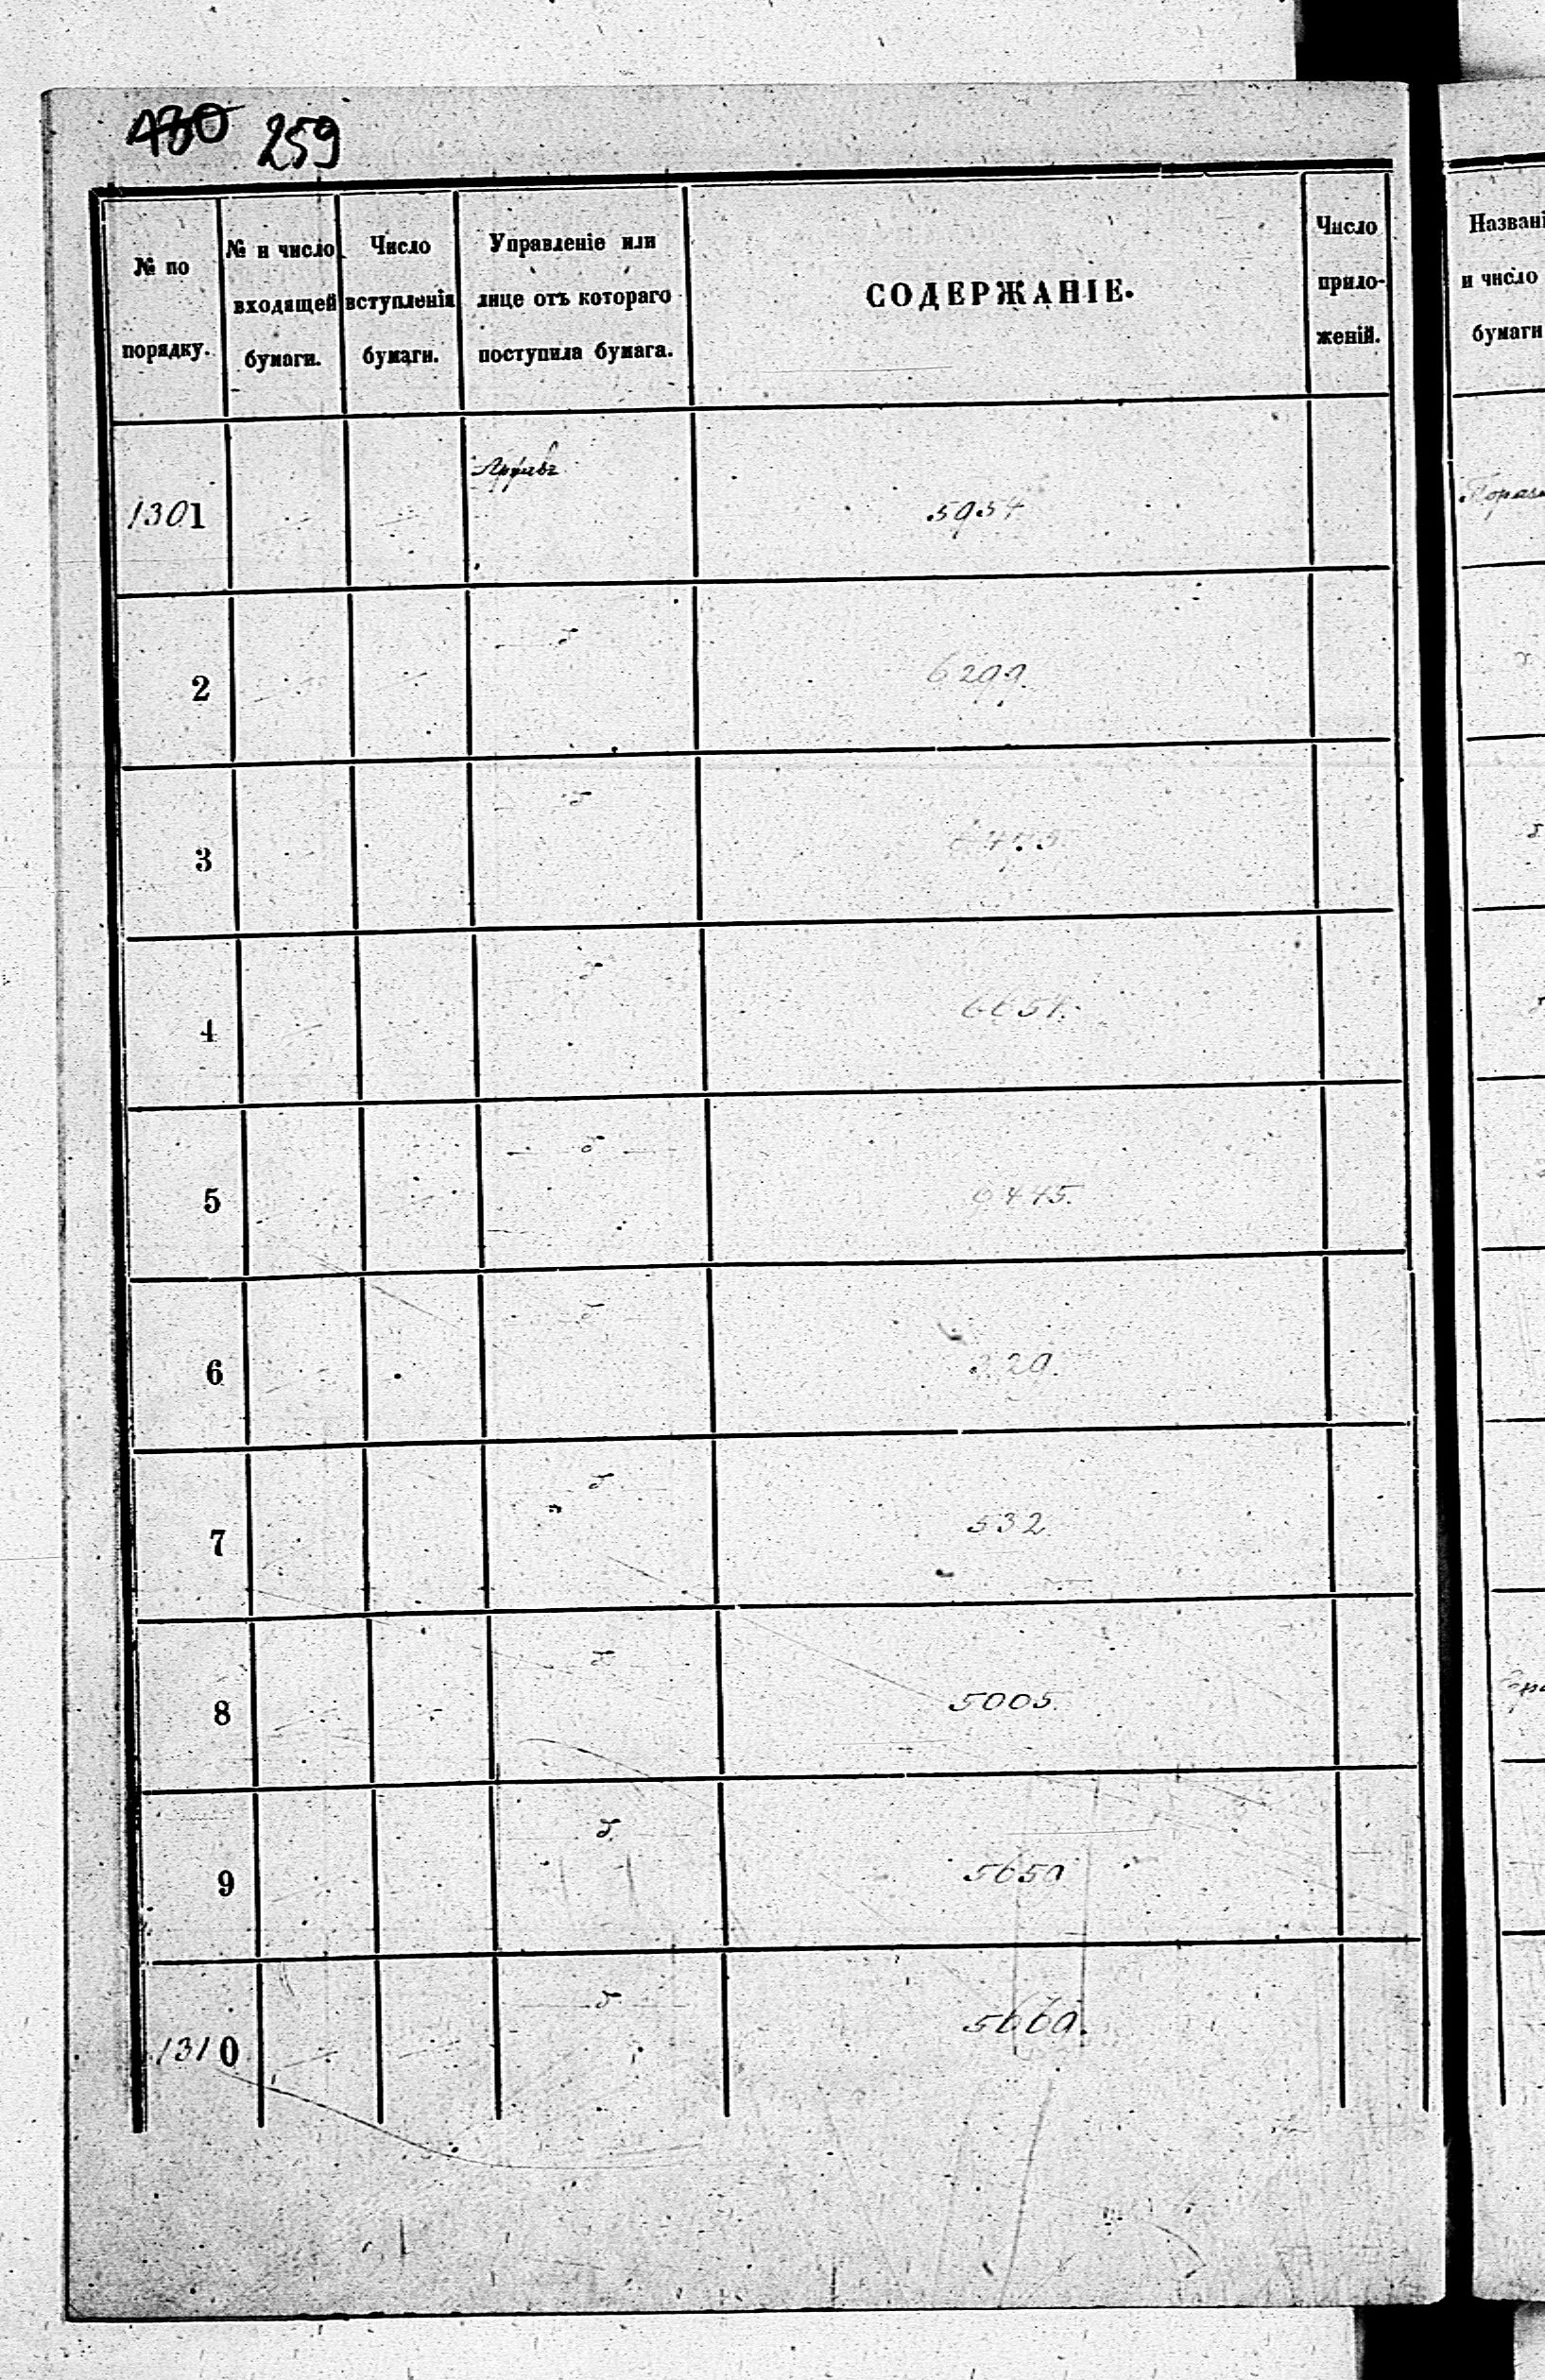 130 259
№ по порядку.
№ и число входящей бумаги.
Число вступленія бумаги.
Управленіе или лице отъ котораго поступила бумага.
СОДЕРЖАНІЕ.
Число приложеній.
Названі
и число
бумаги
1301 Архивъ 5954
2 6299.
3
4 6654.
5
6
7 532
8 5005.
9 5659
1310 5669.